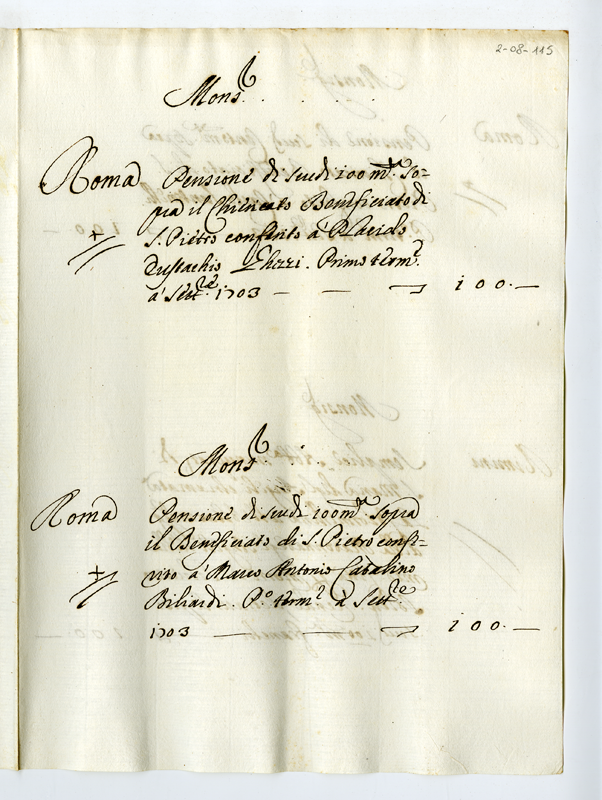 2-08-115
Mons.r
Roma Pensione di scudi 100 m.ta so-
pra il Chiericato Beneficiato di
S. Pietro conferito à Placido
Eustachio Ghezzi. Primo term.e
à Sett.re 1703 — — — 100.—
Mons.r
Roma Pensione di scudi 100 m.ta sopra
il Beneficiato di S. Pietro confe-
rito à Marco Antonio Catalino
Biliardi. P.o term.e à Sett.re
1703 — — — 100.—